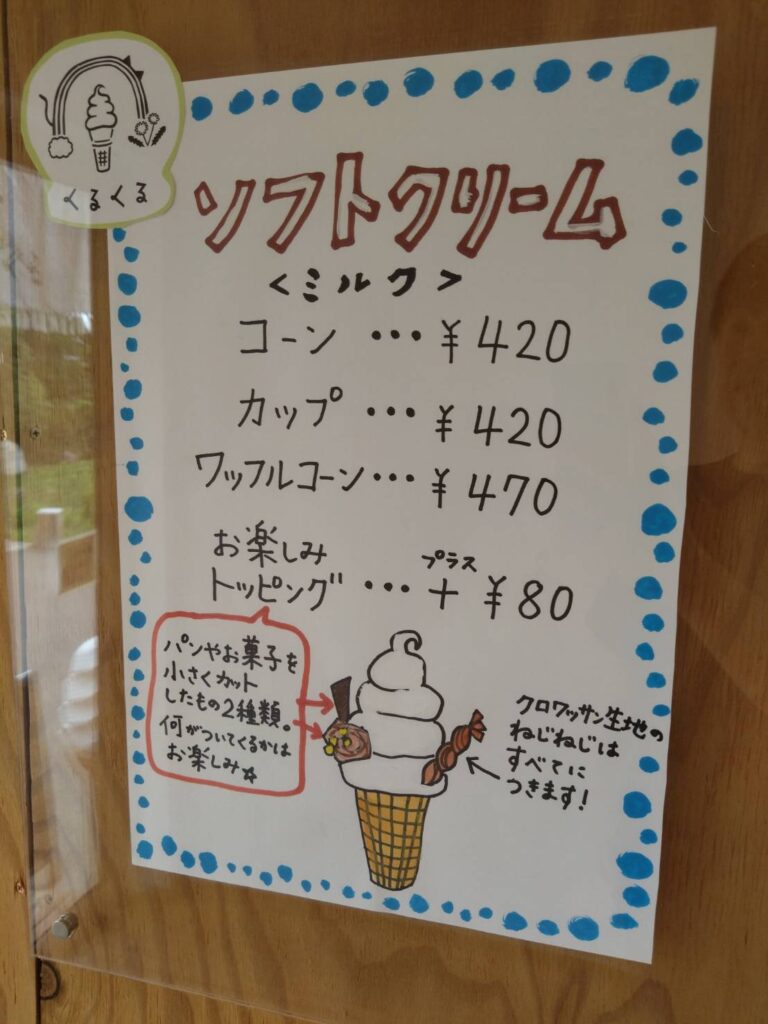 くるくる
ソフトクリーム
<ミルク>
コーン ・・・ ¥420
カップ ・・・ ¥420
ワッフルコーン・・・ ¥470
お楽しみ
トッピング ・・・ プラス + ¥80
パンやお菓子を
小さくカット
したもの2種類。
何がついてくるかは
お楽しみ☆
クロワッサン生地の
ねじねじは
すべてに
つきます!